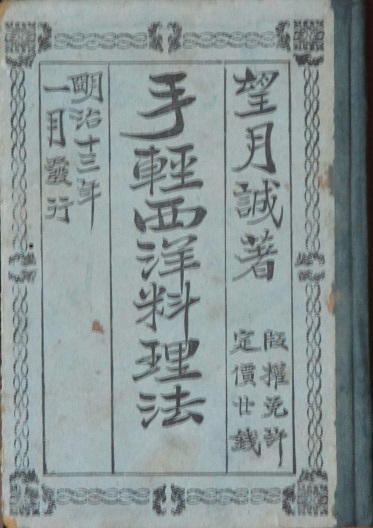 望月誠著
版權免許
定價廿錢
手輕西洋料理法
明治十三年
一月發行